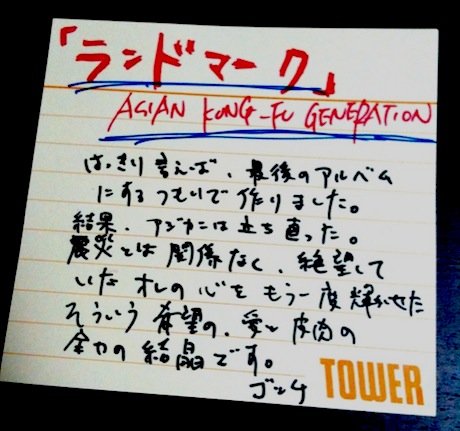 「ランドマーク」
ASIAN KUNG-FU GENERATION
はっきり言えば、最後のアルバム
にするつもりで作りました。
結果、アジカンは立ち直った。
震災とは関係なく、絶望して
いたオレの心をもう一度輝かせた
そういう希望の、愛と皮肉の
全力の結晶です。
ゴッチ
TOWER